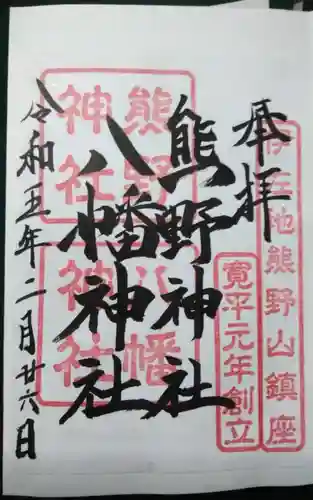 奉拝
熊野神社
八幡神社
令和五年二月廿六日
伊在地熊野山鎮座
寛平元年創立
熊野神社
八幡神社